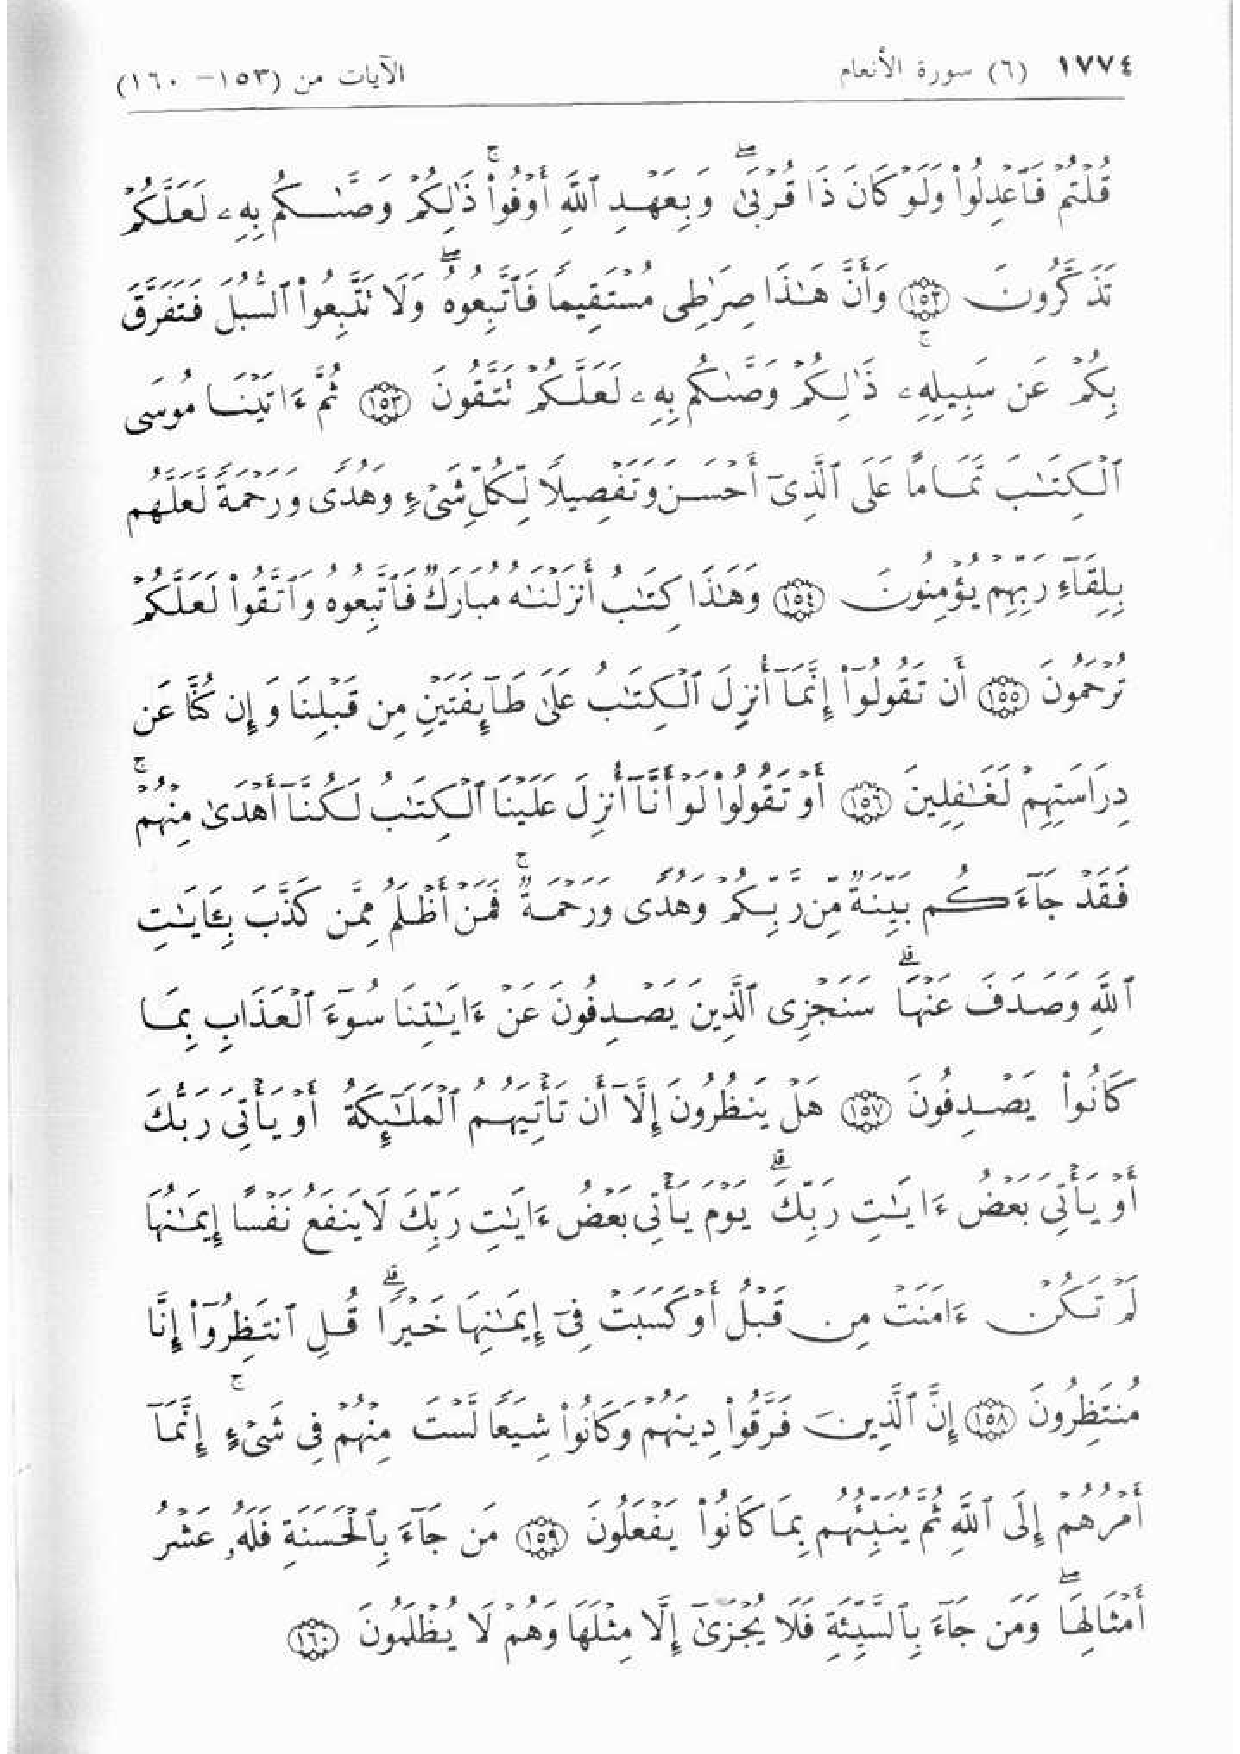 ١٧٧٤ (٦) سورة الأنعام الآيات من (١٥٣- ١٦٠)
قُلْتُمْ فَٱعْدِلُوا۟ وَلَوْ كَانَ ذَا قُرْبَىٰ ۖ وَبِعَهْدِ ٱللَّهِ أَوْفُوا۟ ۚ ذَٰلِكُمْ وَصَّىٰكُم بِهِۦ لَعَلَّكُمْ
تَذَكَّرُونَ ﴿١٥٢﴾ وَأَنَّ هَـٰذَا صِرَٰطِى مُسْتَقِيمًا فَٱتَّبِعُوهُ ۖ وَلَا تَتَّبِعُوا۟ ٱلسُّبُلَ فَتَفَرَّقَ
بِكُمْ عَن سَبِيلِهِۦ ۚ ذَٰلِكُمْ وَصَّىٰكُم بِهِۦ لَعَلَّكُمْ تَتَّقُونَ ﴿١٥٣﴾ ثُمَّ ءَاتَيْنَا مُوسَى
ٱلْكِتَـٰبَ تَمَامًا عَلَى ٱلَّذِىٓ أَحْسَنَ وَتَفْصِيلًا لِّكُلِّ شَىْءٍ وَهُدًى وَرَحْمَةً لَّعَلَّهُم
بِلِقَآءِ رَبِّهِمْ يُؤْمِنُونَ ﴿١٥٤﴾ وَهَـٰذَا كِتَـٰبٌ أَنزَلْنَـٰهُ مُبَارَكٌ فَٱتَّبِعُوهُ وَٱتَّقُوا۟ لَعَلَّكُمْ
تُرْحَمُونَ ﴿١٥٥﴾ أَن تَقُولُوٓا۟ إِنَّمَآ أُنزِلَ ٱلْكِتَـٰبُ عَلَىٰ طَآئِفَتَيْنِ مِن قَبْلِنَا وَإِن كُنَّا عَن
دِرَاسَتِهِمْ لَغَـٰفِلِينَ ﴿١٥٦﴾ أَوْ تَقُولُوا۟ لَوْ أَنَّآ أُنزِلَ عَلَيْنَا ٱلْكِتَـٰبُ لَكُنَّآ أَهْدَىٰ مِنْهُمْ ۚ
فَقَدْ جَآءَكُم بَيِّنَةٌ مِّن رَّبِّكُمْ وَهُدًى وَرَحْمَةٌ ۚ فَمَنْ أَظْلَمُ مِمَّن كَذَّبَ بِـَٔايَـٰتِ
ٱللَّهِ وَصَدَفَ عَنْهَا ۗ سَنَجْزِى ٱلَّذِينَ يَصْدِفُونَ عَنْ ءَايَـٰتِنَا سُوٓءَ ٱلْعَذَابِ بِمَا
كَانُوا۟ يَصْدِفُونَ ﴿١٥٧﴾ هَلْ يَنظُرُونَ إِلَّآ أَن تَأْتِيَهُمُ ٱلْمَلَـٰٓئِكَةُ أَوْ يَأْتِىَ رَبُّكَ
أَوْ يَأْتِىَ بَعْضُ ءَايَـٰتِ رَبِّكَ ۗ يَوْمَ يَأْتِى بَعْضُ ءَايَـٰتِ رَبِّكَ لَا يَنفَعُ نَفْسًا إِيمَـٰنُهَا
لَمْ تَكُنْ ءَامَنَتْ مِن قَبْلُ أَوْ كَسَبَتْ فِىٓ إِيمَـٰنِهَا خَيْرًا ۗ قُلِ ٱنتَظِرُوٓا۟ إِنَّا
مُنتَظِرُونَ ﴿١٥٨﴾ إِنَّ ٱلَّذِينَ فَرَّقُوا۟ دِينَهُمْ وَكَانُوا۟ شِيَعًا لَّسْتَ مِنْهُمْ فِى شَىْءٍ ۚ إِنَّمَآ
أَمْرُهُمْ إِلَى ٱللَّهِ ثُمَّ يُنَبِّئُهُم بِمَا كَانُوا۟ يَفْعَلُونَ ﴿١٥٩﴾ مَن جَآءَ بِٱلْحَسَنَةِ فَلَهُۥ عَشْرُ
أَمْثَالِهَا ۖ وَمَن جَآءَ بِٱلسَّيِّئَةِ فَلَا يُجْزَىٰٓ إِلَّا مِثْلَهَا وَهُمْ لَا يُظْلَمُونَ ﴿١٦٠﴾